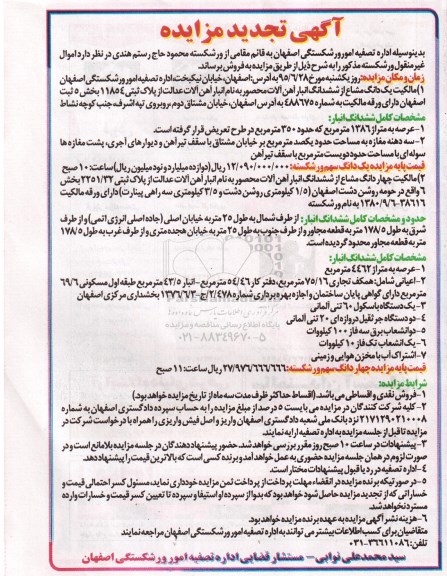 آگهی تجدید مزایده
بدینوسیله اداره تصفیه امور ورشکستگی اصفهان به قائم مقامی از ورشکسته محمود حاج رستم هندی در نظر دارد اموال
غیر منقول ورشکسته مذکور را به شرح ذیل از طریق مزایده به فروش برساند.
زمان و مکان مزایده: روز یکشنبه مورخ ۹۵/۶/۲۸ به آدرس: اصفهان، خیابان نیکبخت، اداره تصفیه امور ورشکستگی اصفهان
۱) مالکیت یک دانگ مشاع از ششدانگ انبار آهن آلات محصور به نام انبار آهن آلات عدالت از پلاک ثبتی ۱۱۸۵۴ بخش ۵ ثبت
اصفهان دارای ورقه مالکیت به شماره ۴۸۸۶۷۵ به آدرس اصفهان، خیابان مشتاق دوم، روبروی تپه اشرف، جنب کوچه نشاط
مشخصات کامل ششدانگ انبار:
۱- عرصه به متراژ ۱۳۸۶ متر مربع که حدود ۳۵۰ متر مربع در طرح تعریض قرار گرفته است.
۲- سه دهنه مغازه به مساحت حدود یکصد متر مربع بر خیابان مشتاق با سقف تیرآهن و دیوارهای آجری، پشت مغازه ها
سوله ای با مساحت حدود دویست متر مربع با سقف تیرآهن
قیمت پایه مزایده یک دانگ سهم ورشکسته: ۱۲/۰۹۰/۰۰۰/۰۰۰ ریال (دوازده میلیارد و نود میلیون ریال) ساعت: ۱۰ صبح
۲) مالکیت چهار دانگ مشاع از ششدانگ انبار آهن آلات محصور به نام انبار آهن آلات عدالت از پلاک ثبتی ۲۲۵۱/۳۲ بخش
۶ واقع در حومه روشن دشت اصفهان (۱/۵ کیلومتری روشن دشت و ۳/۵ کیلومتری سه راهی پینارت) دارای ورقه مالکیت
۳۸۶۱۶-۱۳۸۰/۹/۶ به نام ورشکسته
حدود و مشخصات کامل ششدانگ انبار: از طرف شمال به طول ۲۵ متر به خیابان اصلی (جاده اصلی انرژی اتمی) و از طرف
شرق به طول ۱۷۸/۵ متر به قطعه مجاور و از طرف جنوب به طول ۲۵ متر به خیابان هجده متری و از طرف غرب به طول ۱۷۸/۵
متر به قطعه مجاور محدود گردیده است.
مشخصات کامل ششدانگ انبار:
۱- عرصه به متراژ ۴۴۶۲ متر مربع
۲- اعیانی شامل: همکف تجاری ۷۵/۱۶ متر مربع، دفتر کار ۵۴/۴۶ متر مربع - انبار ۴۳/۵ متر مربع طبقه اول مسکونی ۶۹/۶
متر مربع دارای گواهی پایان ساختمان و اجازه بهره برداری شماره بخشداری مرکزی اصفهان
۳- یک دستگاه باسکول ۶۰ تنی آلمانی
۴- دو دستگاه جرثقیل دروازه ای ۲۰ تنی آلمانی
۵- دو انشعاب برق سه فاز ۱۰۰ کیلووات
۶- یک انشعاب تک فاز ۱۰ کیلووات
۷- اشتراک آب با مخزن هوایی و زمینی
قیمت پایه مزایده چهار دانگ سهم ورشکسته: ۲۷/۹۷۶/۶۶۶/۶۶۶ ریال ساعت: ۱۱ صبح
شرایط مزایده:
۱- فروش نقدی و اقساطی می باشد. (اقساط حداکثر ظرف مدت سه ماه از تاریخ مزایده خواهد بود.)
۲- کلیه شرکت کنندگان در مزایده می بایست ۵ درصد از مبلغ مزایده را به حساب سپرده دادگستری اصفهان به شماره
۲۱۷۱۲۹۰۲۱۰۰۰۸ نزد بانک ملی شعبه دادگستری اصفهان واریز و اصل فیش واریزی را همراه با درخواست شرکت در
مزایده تا قبل از جلسه مزایده به اداره تصفیه ارایه نمایند.
۳- پیشنهادات در ساعت ۱۰ صبح روز مقرر بررسی خواهد شد. حضور پیشنهاد دهندگان در جلسه مزایده بلامانع است و در
صورت لزوم در همان جلسه مزایده حضوری به عمل خواهد آمد و برنده کسی است که بالاترین قیمت را پیشنهاد دهد.
۴- اداره تصفیه در رد یا قبول پیشنهادات مختار است.
۵- در صورتیکه برنده مزایده در انقضاء مهلت پرداخت از پرداخت ثمن مزایده خودداری نماید، مسئول کسر احتمالی قیمت و
خساراتی که از تجدید مزایده حاصل شود خواهد بود که بدوا از سپرده او استیفا و سپرده تا تعیین کسر قیمت و خسارات وارده
مسترد نخواهد شد.
۶- هزینه نشر آگهی مزایده به عهده برنده مزایده خواهد بود.
متقاضیان برای کسب اطلاعات بیشتر می توانند به اداره تصفیه امور ورشکستگی اصفهان مراجعه نمایند
تلفن: ۳۶۶۱۱۰۸۶-۰۳۱
سید محمدعلی نوابی - مستشار قضایی اداره تصفیه امور ورشکستگی اصفهان
پایگاه اطلاع رسانی مناقصه و مزایده
۰۲۱-۸۸۳۴۹۶۷۰-۵